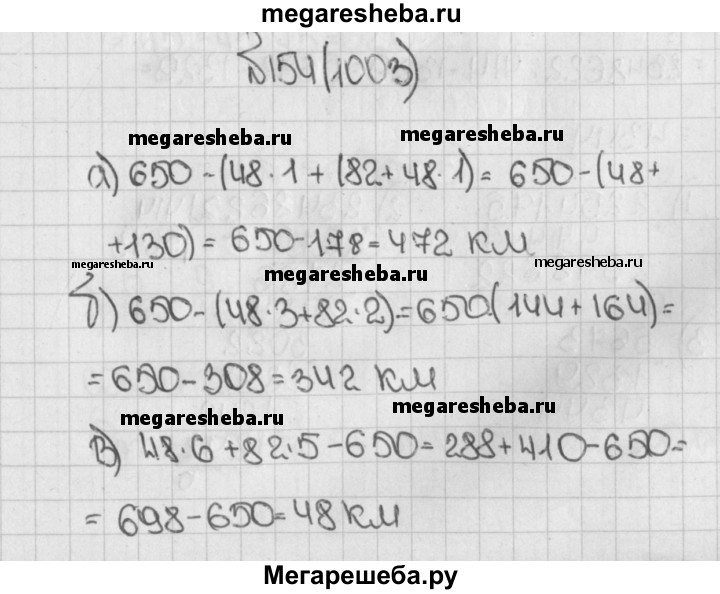 megaresheba.ru
№154(1003)
megaresheba.ru megaresheba.ru
а) 650-(48·1+(82+48·1)= 650-(48+
+130)= 650-178=472 км
megaresheba.ru megaresheba.ru megaresheba.ru
б) 650-(48·3+82·2)=650(144+164)=
=650-308=342 км
megaresheba.ru megaresheba.ru
в) 48·6+82·5-650=288+410-650=
=698-650=48 км
Мегарешеба.ру